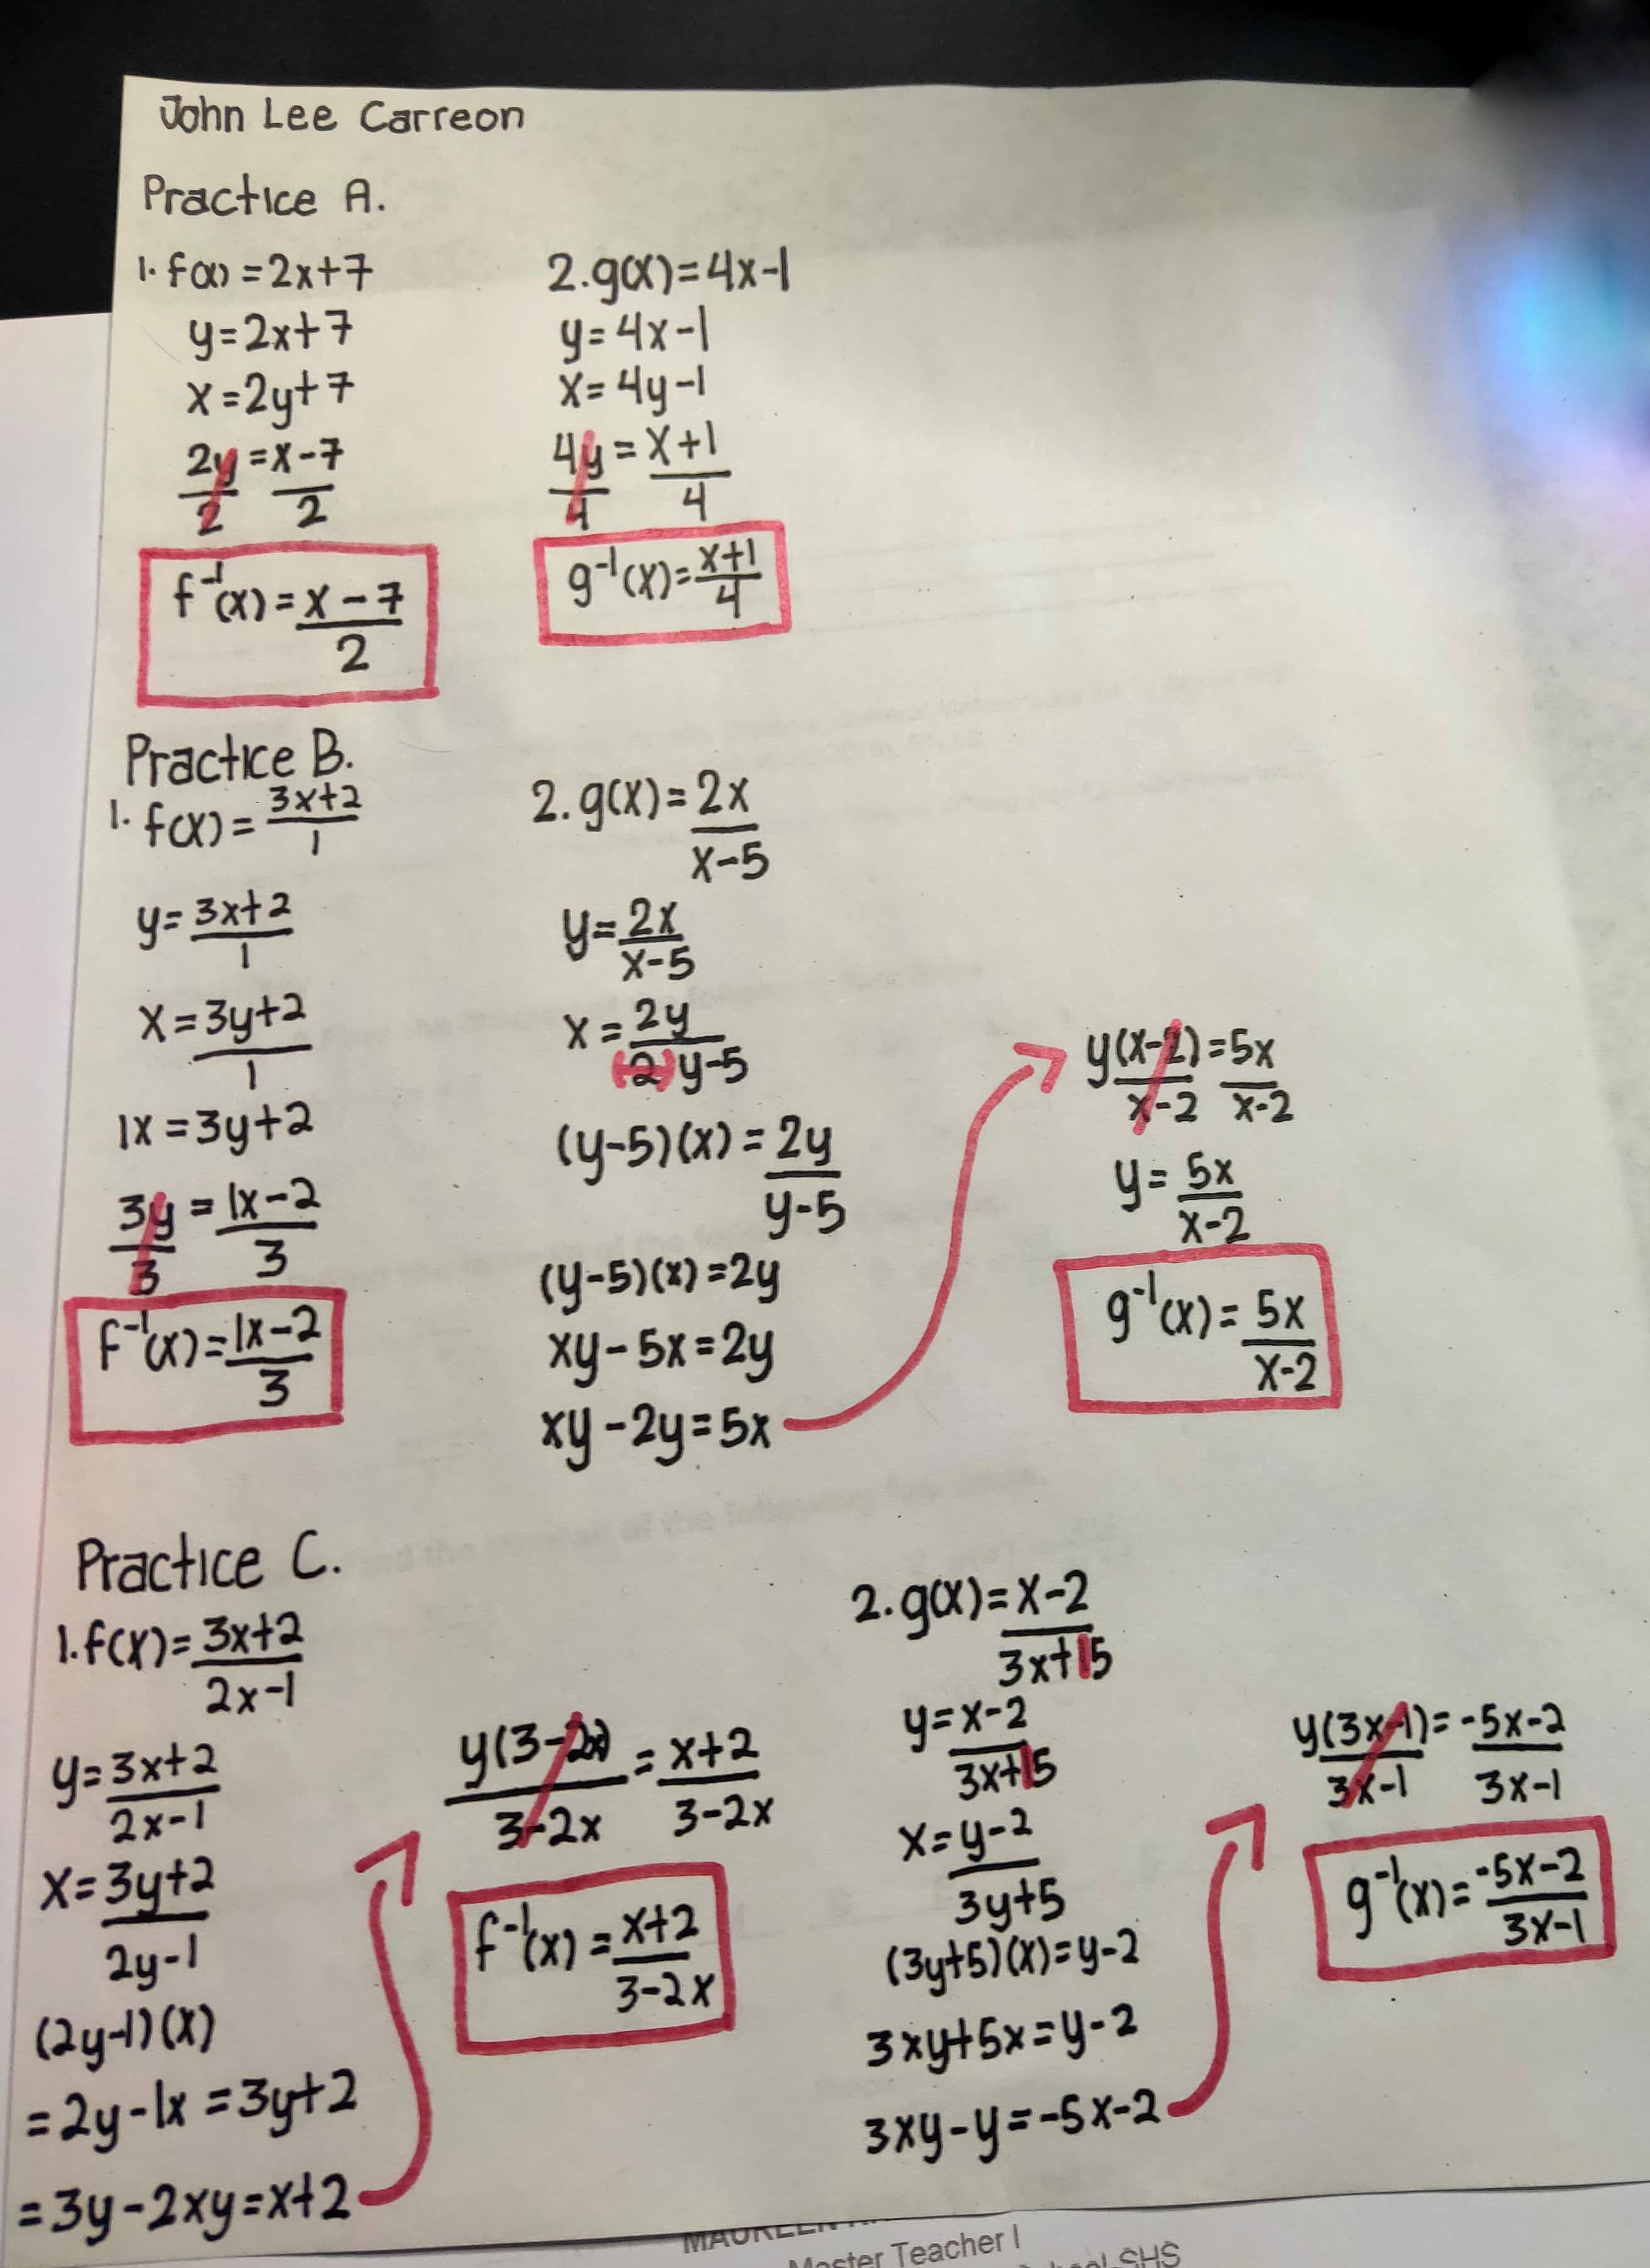 John Lee Carreon
Practice A.
1. f(x) = 2x+7
y = 2x+7
x = 2y+7
2y/2 = x-7/2
f⁻¹(x) = x-7/2
2. g(x) = 4x-1
y = 4x-1
x = 4y-1
4y/4 = x+1/4
g⁻¹(x) = x+1/4
Practice B.
1. f(x) = 3x+2/1
y = 3x+2/1
x = 3y+2/1
1x = 3y+2
3y/3 = 1x-2/3
f⁻¹(x) = 1x-2/3
2. g(x) = 2x/x-5
y = 2x/x-5
x = 2y/(2)y-5
(y-5)(x) = 2y/y-5
(y-5)(x) = 2y
xy-5x = 2y
xy-2y = 5x
y(x-2)/x-2 = 5x/x-2
y = 5x/x-2
g⁻¹(x) = 5x/x-2
Practice C.
1. f(x) = 3x+2/2x-1
y = 3x+2/2x-1
x = 3y+2/2y-1
(2y-1)(x)
= 2y-1x = 3y+2
= 3y-2xy = x+2
y(3-2x)/3-2x = x+2/3-2x
f⁻¹(x) = x+2/3-2x
2. g(x) = x-2/3x+5
y = x-2/3x+5
x = y-2/3y+5
(3y+5)(x) = y-2
3xy+5x = y-2
3xy-y = -5x-2
y(3x-1)/3x-1 = -5x-2/3x-1
g⁻¹(x) = -5x-2/3x-1
MAUREEN
Master Teacher I
SHS